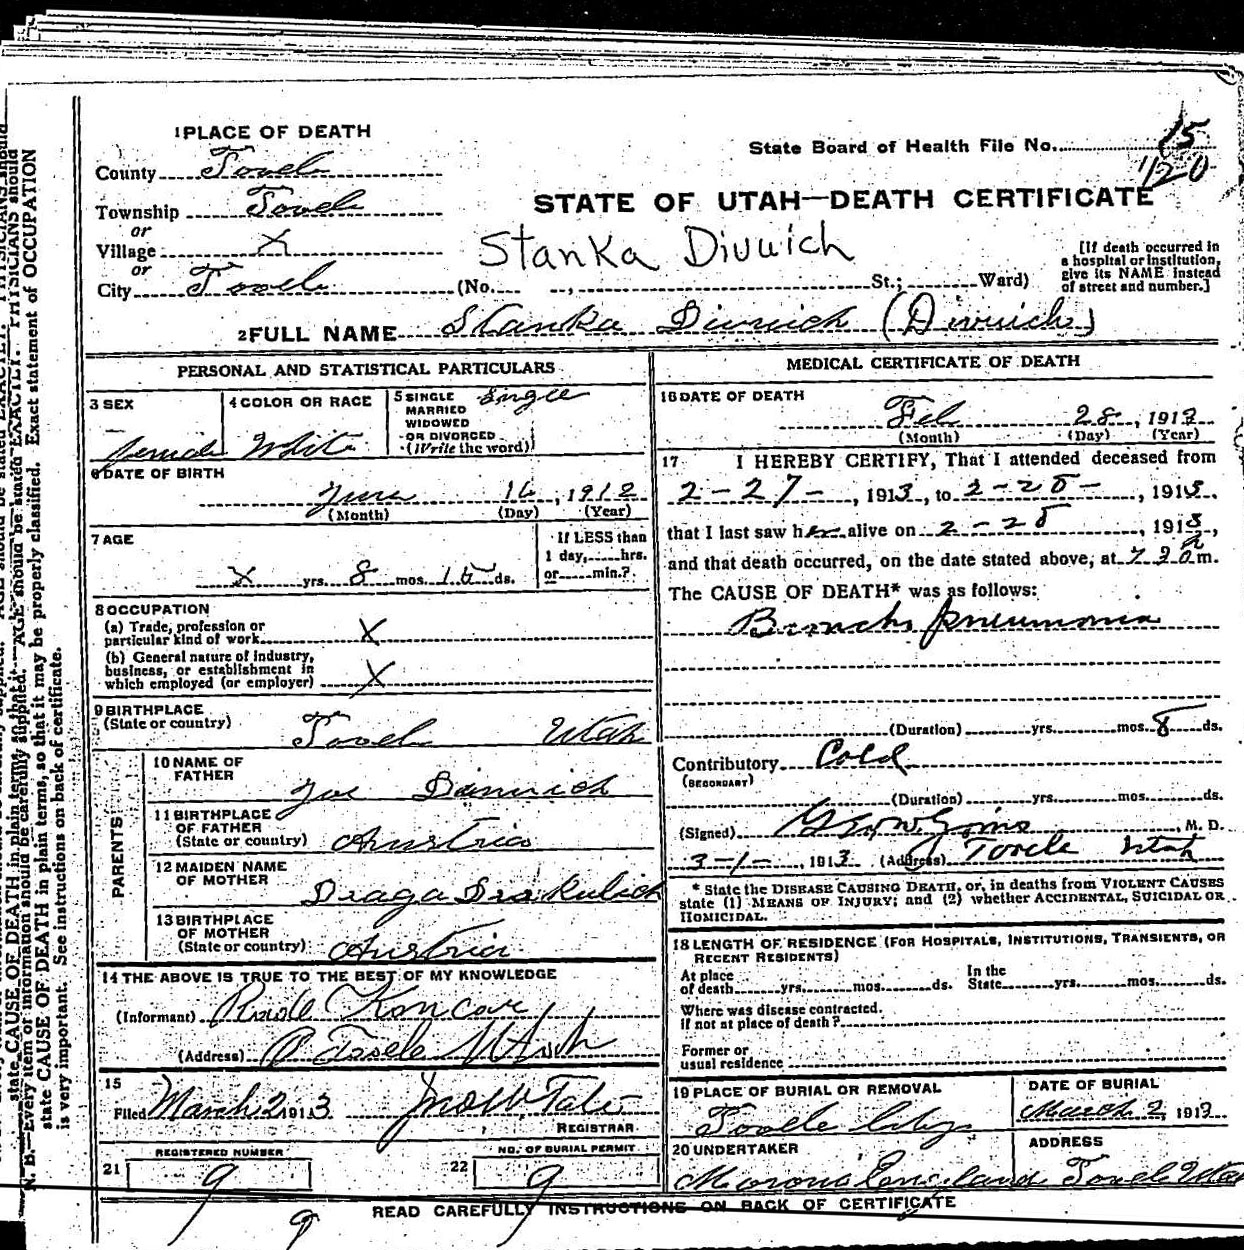 1 PLACE OF DEATH
State Board of Health File No. 15
120
County Tooele
Township Tooele
or
Village X
or
City Tooele (No. , St.; Ward)
STATE OF UTAH—DEATH CERTIFICATE
Stanka Divuich
[If death occurred in
a hospital or institution,
give its NAME instead
of street and number.]
2 FULL NAME Stanka Divuich (Divuich)
PERSONAL AND STATISTICAL PARTICULARS
3 SEX
Female
4 COLOR OR RACE
White
5 SINGLE
MARRIED
WIDOWED
OR DIVORCED
(Write the word)
Single
6 DATE OF BIRTH
June 16, 1912
(Month) (Day) (Year)
7 AGE
X yrs. 8 mos. ds.
If LESS than
1 day, hrs.
or min.?
8 OCCUPATION
(a) Trade, profession or
particular kind of work X
(b) General nature of industry,
business, or establishment in
which employed (or employer) X
9 BIRTHPLACE
(State or country)
Tooele Utah
PARENTS
10 NAME OF
FATHER
Joe
11 BIRTHPLACE
OF FATHER
(State or country) Austria
12 MAIDEN NAME
OF MOTHER
Draga Drakulich
13 BIRTHPLACE
OF MOTHER
(State or country) Austria
14 THE ABOVE IS TRUE TO THE BEST OF MY KNOWLEDGE
(Informant) Rade Koncar
(Address) Tooele Utah
15
Filed March 2 1913 Jno W Tate
REGISTRAR
21 REGISTERED NUMBER
9
22 NO. OF BURIAL PERMIT
9
MEDICAL CERTIFICATE OF DEATH
16 DATE OF DEATH
Feb 28, 1913
(Month) (Day) (Year)
17 I HEREBY CERTIFY, That I attended deceased from
2-27-, 1913, to 2-28-, 1913,
that I last saw her alive on 2-28, 1913,
and that death occurred, on the date stated above, at 720 a m.
The CAUSE OF DEATH* was as follows:
Broncho pneumonia
(Duration) yrs. mos. 8 ds.
Contributory Cold
(SECONDARY)
(Duration) yrs. mos. ds.
(Signed) , M. D.
3-1-, 1913 (Address) Tooele Utah
* State the DISEASE CAUSING DEATH, or, in deaths from VIOLENT CAUSES
state (1) MEANS OF INJURY; and (2) whether ACCIDENTAL, SUICIDAL OR
HOMICIDAL.
18 LENGTH OF RESIDENCE (FOR HOSPITALS, INSTITUTIONS, TRANSIENTS, OR
RECENT RESIDENTS)
At place
of death yrs. mos. ds.
In the
State yrs. mos. ds.
Where was disease contracted.
If not at place of death?
Former or
usual residence
19 PLACE OF BURIAL OR REMOVAL
Tooele City
DATE OF BURIAL
March 2, 1913
20 UNDERTAKER
ADDRESS
Tooele Utah
READ CAREFULLY INSTRUCTIONS ON BACK OF CERTIFICATE
9
N. B.—Every item of information should be carefully supplied. AGE should be stated EXACTLY. PHYSICIANS should
state CAUSE OF DEATH in plain terms, so that it may be properly classified. Exact statement of OCCUPATION
is very important. See instructions on back of certificate.